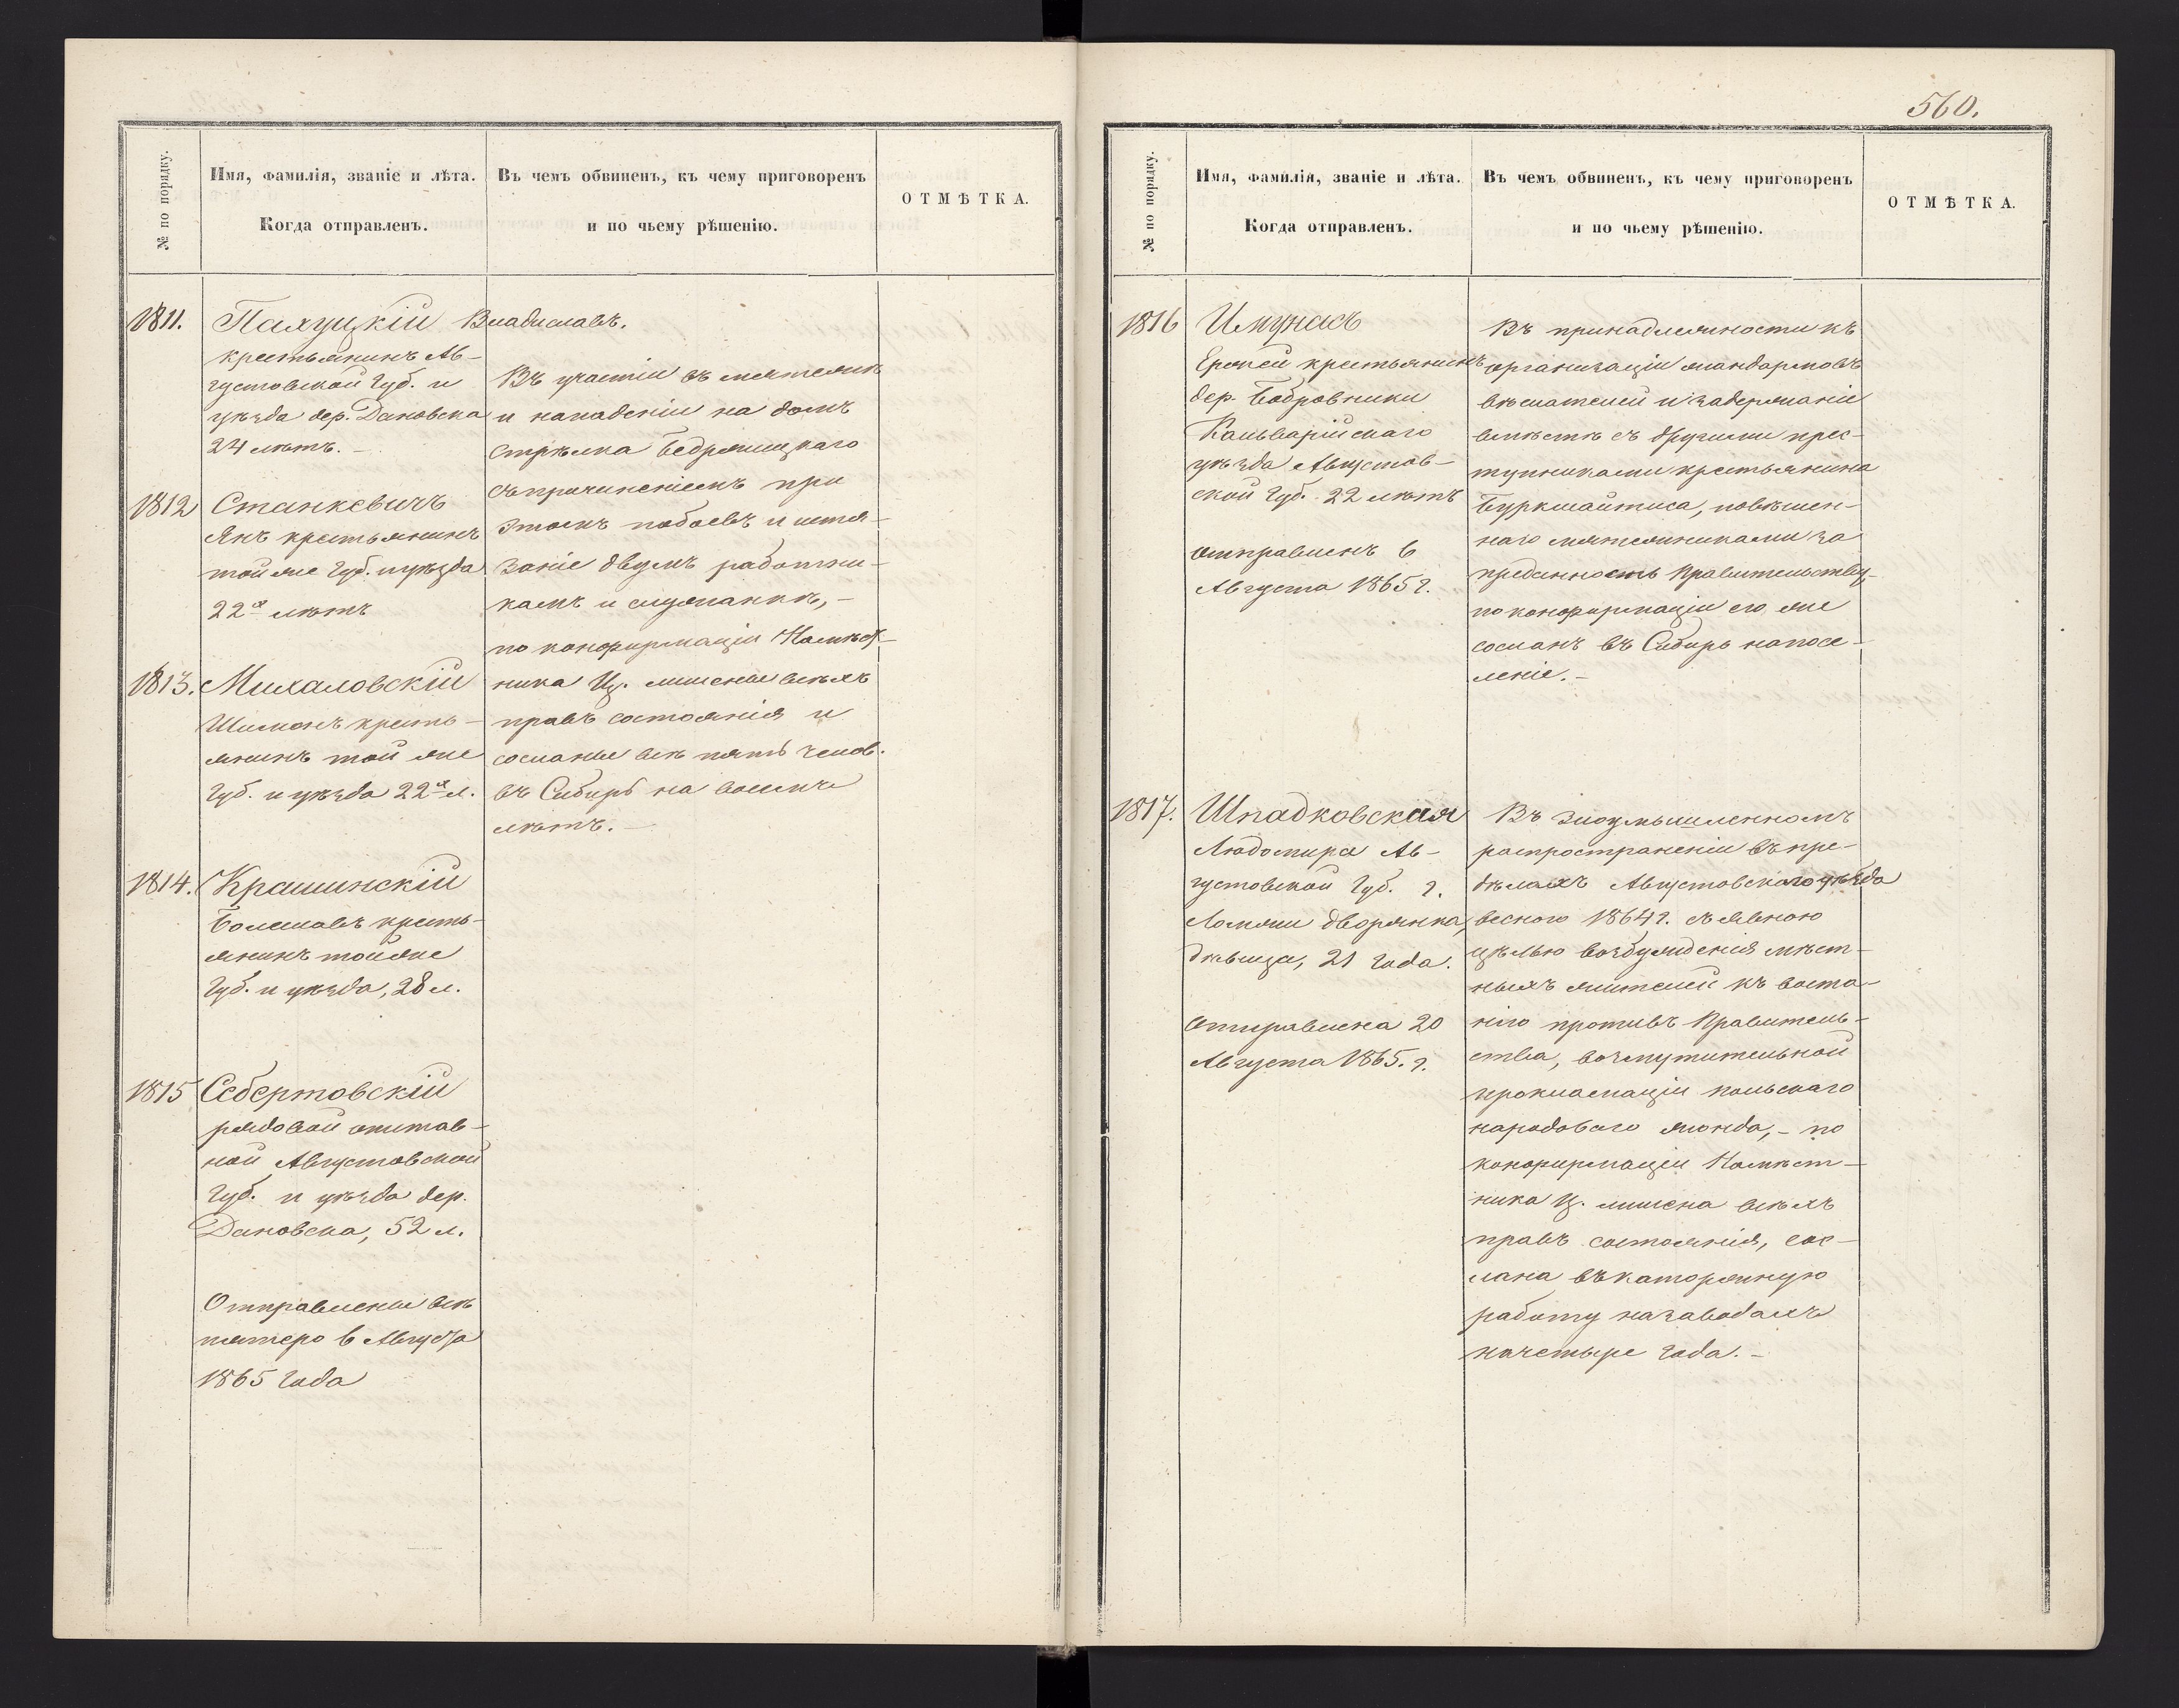 560.
№ по порядку.
Имя, фамилія, званіе и лѣта.
Когда отправленъ.
Въ чемъ обвиненъ, къ чему приговоренъ
и по чьему рѣшенію.
ОТМѢТКА.
1811. Палуцкій Владиславъ.
крестьянинъ Ав-
густовской Губ. и
уѣзда дер. Дановска
24 лѣтъ. –
1812 Станкевичъ
Янъ крестьянинъ
той же Губ. и уѣзда
22х лѣтъ
1813. Михаловскій
Шимонъ кресть-
янинъ той же
Губ. и уѣзда 22х л.
1814. Крашинскій
Болеславъ кресть-
янинъ той же
Губ. и уѣзда, 28 л.
1815 Себертовскій
рядовой отстав-
ной Августовской
Губ. и уѣзда дер.
Дановска, 52 л.
Отправлены всѣ
пятеро 6 Августа
1865 года
Въ участіи въ мятежѣ
и нападеніи на домъ
стрѣлка Бедржицкаго
съ причиненіемъ при
этомъ побоевъ и истя-
заніе двумъ работни-
камъ и служанкѣ, –
по конфирмаціи Намѣст-
ника Ц. лишены всѣхъ
правъ состоянія и
сосланы всѣ пять челов.
въ Сибирь на восемь
лѣтъ. –
№ по порядку.
Имя, фамилія, званіе и лѣта.
Когда отправленъ.
Въ чемъ обвиненъ, къ чему приговоренъ
и по чьему рѣшенію.
ОТМѢТКА.
1816
Ержей крестьянинъ
дер. Бобровники
Кальварійскаго
уѣзда Августов-
ской Губ. 22 лѣтъ
отправленъ 6
Августа 1865 г.
Въ принадлежности къ
организаціи жандармовъ
вѣшателей и задержаніе
вмѣстѣ съ другими прес-
тупниками крестьянина
Буркшайтиса, повѣшен-
наго мятежниками за
преданность Правительству,
по конфирмаціи его же
сосланъ въ Сибирь на посе-
леніе. –
1817. Шпадковская
Людомира Ав-
густовской Губ. г.
Ломжи дворянка,
дѣвица, 21 года.
Отправлена 20
Августа 1865. г.
Въ злоумышленномъ
распространеніи въ пре-
дѣлахъ Августовскаго уѣзда
весною 1864 г. съ явною
цѣлью возбужденія мѣст-
ныхъ жителей къ воста-
нію противъ Правитель-
ства, возмутительной
прокламаціи польскаго
народоваго жонда, – по
конфирмаціи Намѣст-
ника Ц. лишена всѣхъ
правъ состоянія, сос-
лана въ каторжную
работу на заводахъ
на четыре года. –